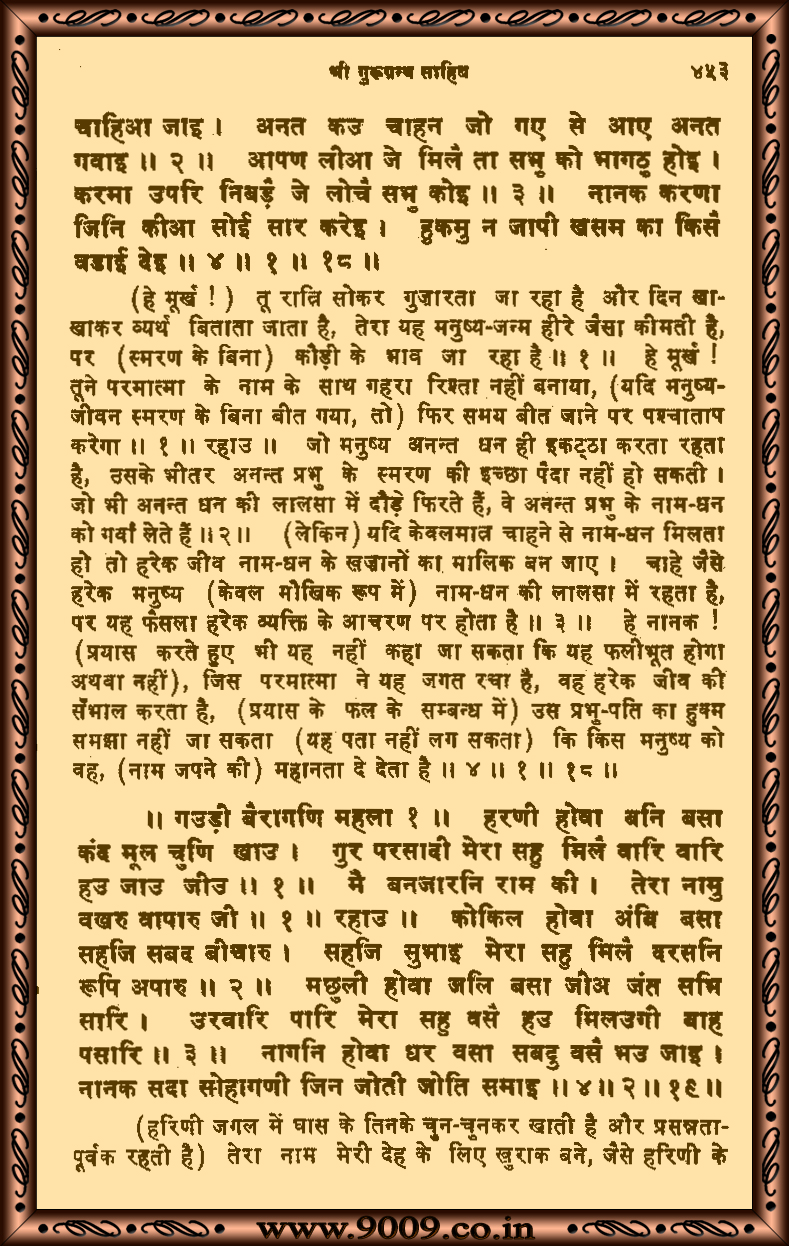 श्री गुरूग्रन्थ साहिब ४५३
चाहिआ जाइ । अनत कउ चाहन जो गए से आए अनत
गवाइ ॥ २ ॥ आपण लीआ जे मिलै ता सभु को भागठु होइ ।
करमा उपरि निबड़ै जे लोचै सभु कोइ ॥ ३ ॥ नानक करणा
जिनि कीआ सोई सार करेइ । हुकमु न जापी खसम का किसै
वडाई देइ ॥ ४ ॥ १ ॥ १८ ॥
(हे मूर्ख ! ) तू रात्रि सोकर गुज़ारता जा रहा है और दिन खा-
खाकर व्यर्थ बिताता जाता है, तेरा यह मनुष्य-जन्म हीरे जैसा कीमती है,
पर (स्मरण के बिना) कौड़ी के भाव जा रहा है ॥ १ ॥ हे मूर्ख !
तूने परमात्मा के नाम के साथ गहरा रिश्ता नहीं बनाया, (यदि मनुष्य-
जीवन स्मरण के बिना बीत गया, तो) फिर समय बीत जाने पर पश्चाताप
करेगा ॥ १ ॥ रहाउ ॥ जो मनुष्य अनन्त धन ही इकट्ठा करता रहता
है, उसके भीतर अनन्त प्रभु के स्मरण की इच्छा पैदा नहीं हो सकती ।
जो भी अनन्त धन की लालसा में दौड़े फिरते हैं, वे अनन्त प्रभु के नाम-धन
को गवाँ लेते हैं ॥ २ ॥ (लेकिन) यदि केवलमात्र चाहने से नाम-धन मिलता
हो तो हरेक जीव नाम-धन के खज़ानों का मालिक बन जाए । चाहे जैसे
हरेक मनुष्य (केवल मौखिक रूप में) नाम-धन की लालसा में रहता है,
पर यह फैसला हरेक व्यक्ति के आचरण पर होता है ॥ ३ ॥ हे नानक !
(प्रयास करते हुए भी यह नहीं कहा जा सकता कि यह फलीभूत होगा
अथवा नहीं), जिस परमात्मा ने यह जगत रचा है, वह हरेक जीव की
सँभाल करता है, (प्रयास के फल के सम्बन्ध में) उस प्रभु-पति का हुक्म
समझा नहीं जा सकता (यह पता नहीं लग सकता) कि किस मनुष्य को
वह, (नाम जपने की) महानता दे देता है ॥ ४ ॥ १ ॥ १८ ॥
॥ गउड़ी बैरागणि महला १ ॥ हरणी होवा बनि बसा
कंद मूल चुणि खाउ । गुर परसादी मेरा सहु मिलै वारि वारि
हउ जाउ जीउ ॥ १ ॥ मै बनजारनि राम की । तेरा नामु
वखरु वापारु जी ॥ १ ॥ रहाउ ॥ कोकिल होवा अंबि बसा
सहजि सबद बीचारु । सहजि सुभाइ मेरा सहु मिलै दरसनि
रूपि अपारु ॥ २ ॥ मछुली होवा जलि बसा जीअ जंत सभि
सारि । उरवारि पारि मेरा सहु वसै हउ मिलउगी बाह
पसारि ॥ ३ ॥ नागनि होवा धर वसा सबदु वसै भउ जाइ ।
नानक सदा सोहागणी जिन जोती जोति समाइ ॥ ४ ॥ २ ॥ १९ ॥
(हरिणी जगल में घास के तिनके चुन-चुनकर खाती है और प्रसन्नता-
पूर्वक रहती है) तेरा नाम मेरी देह के लिए खुराक बने, जैसे हरिणी के
www.9009.co.in